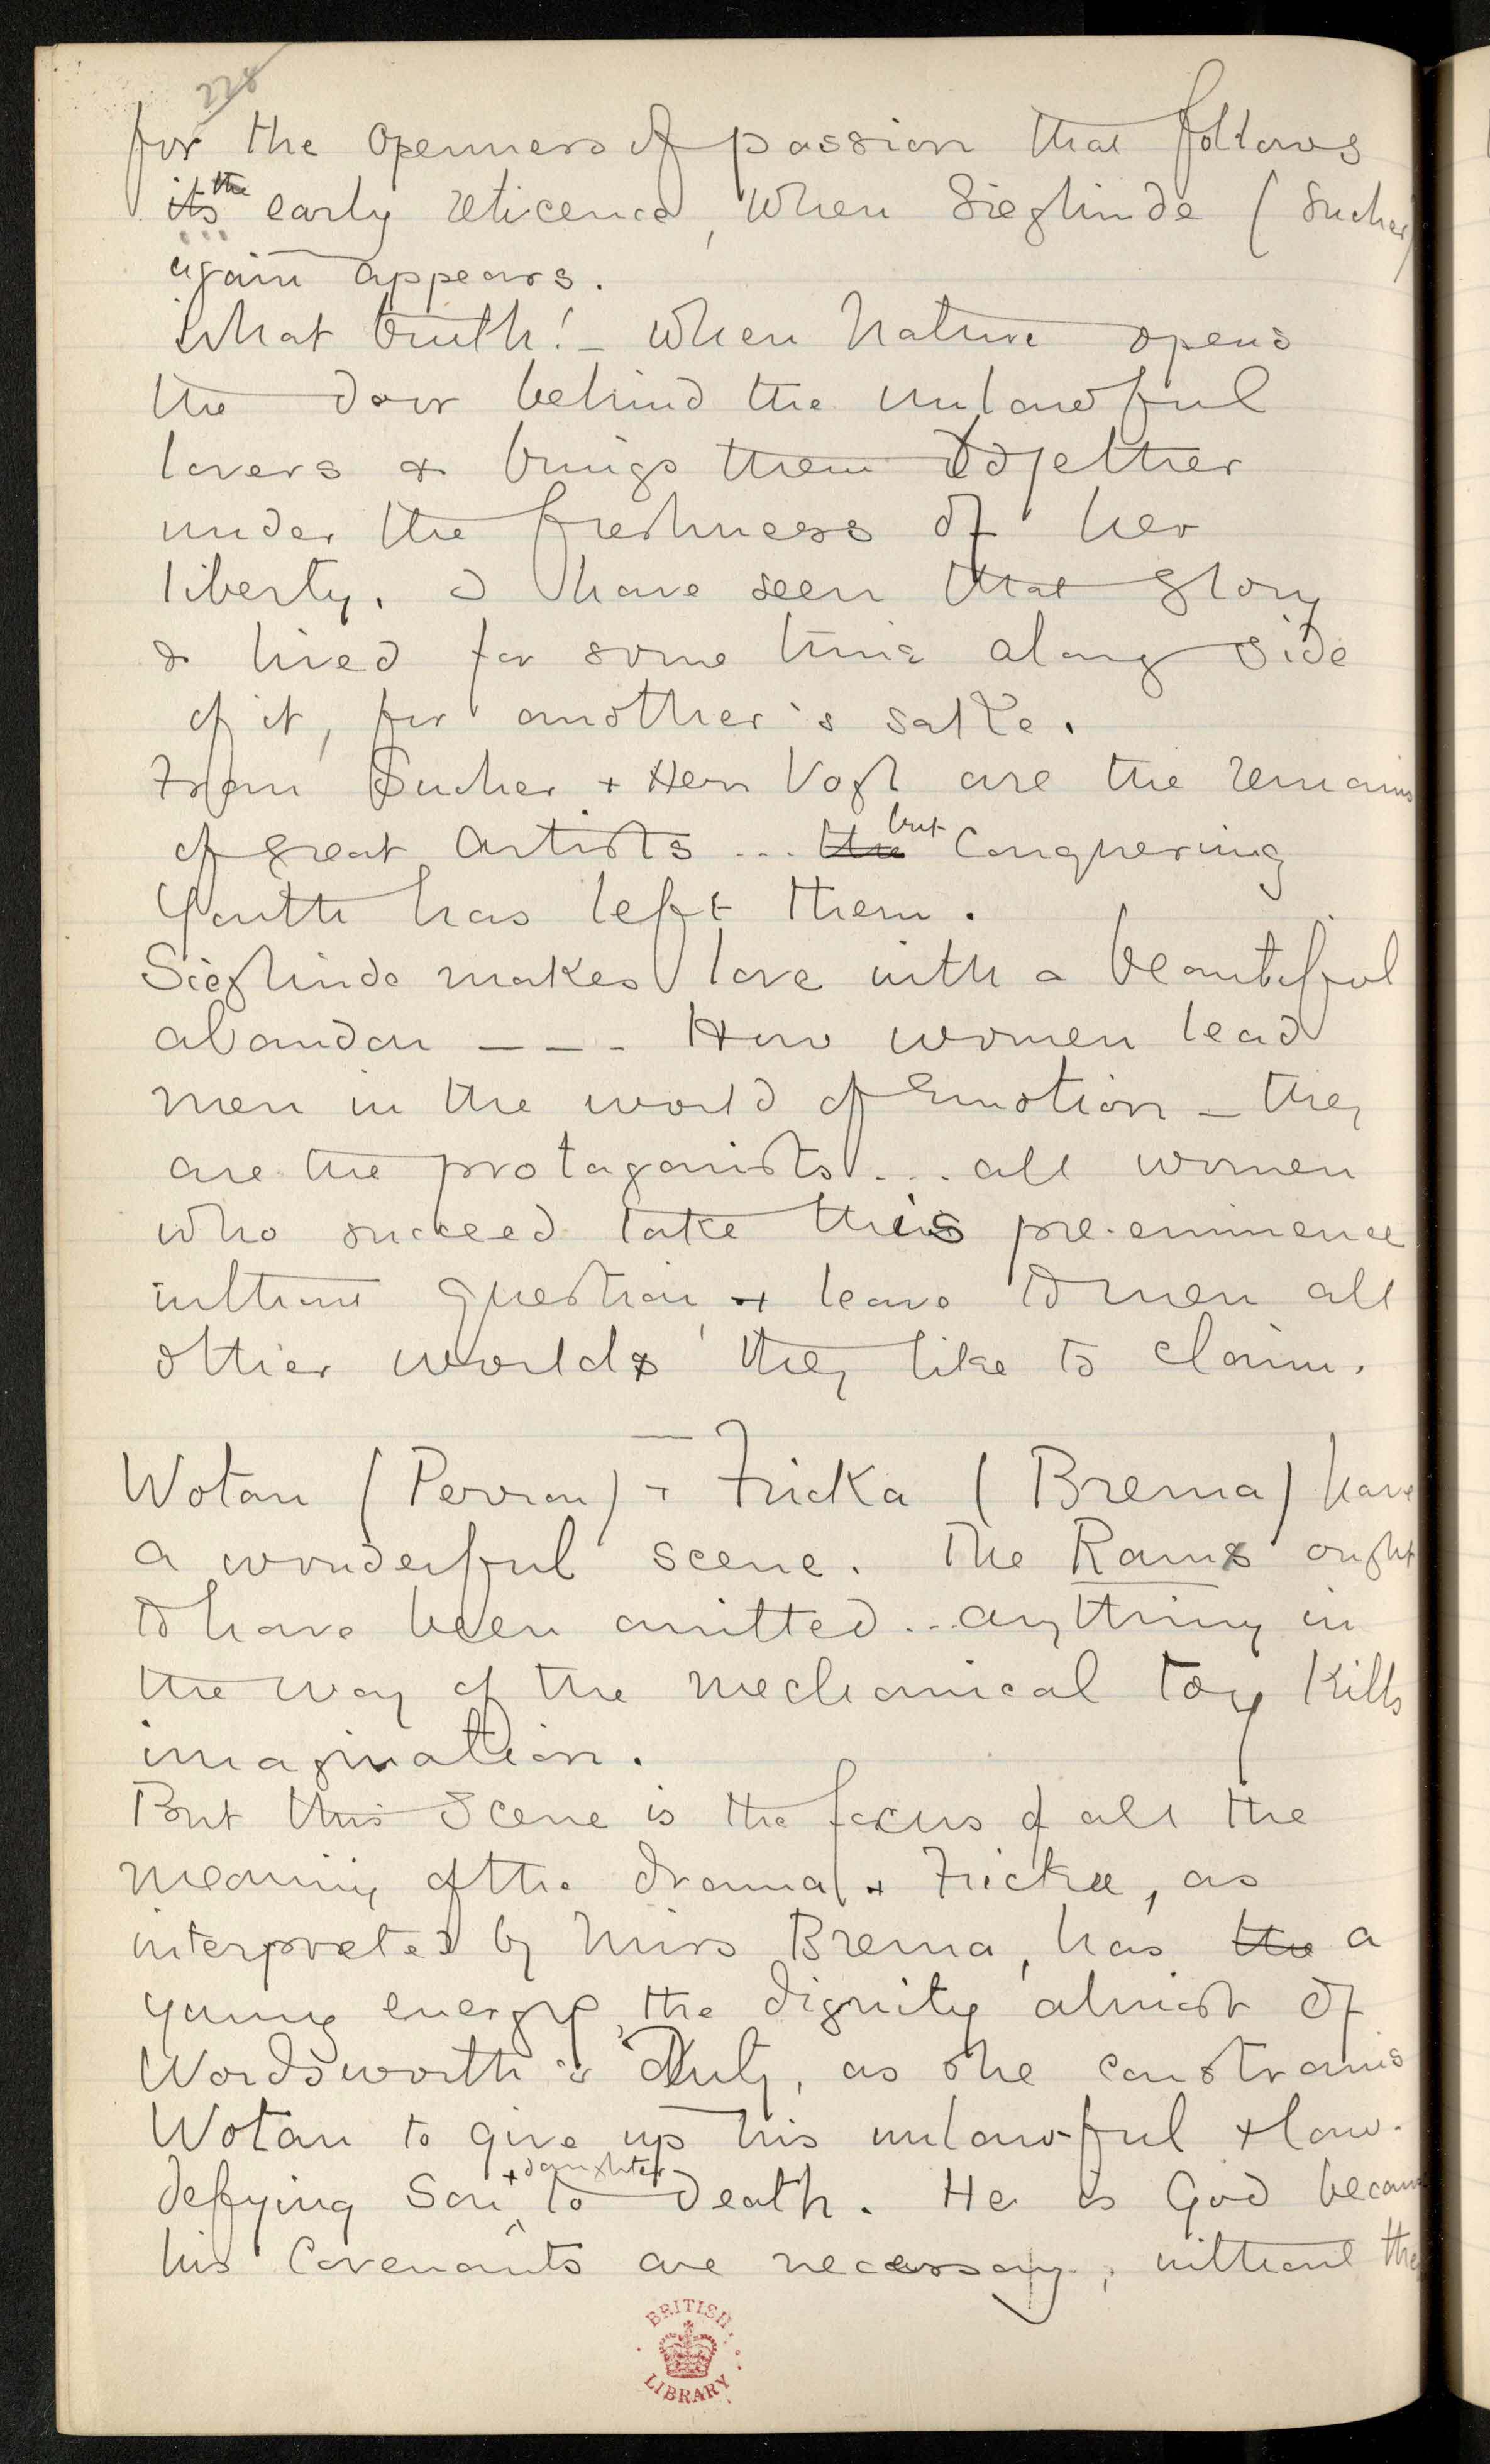 228
for the openness of passion that follows
~~its~~ the early reticence, when Sieglinde (Sucher)
again appears.
What truth! – when Nature opens
the door behind the unlawful
lovers & brings them together
under the freshness of her
liberty. I have seen that glory
& lived for some time along side
of it, for another's sake.
Frau Sucher + Herr Vogl are the remains
of great artists ... ~~the~~ but Conquering
Youth has left them.
Sieglinde makes love with a beautiful
abandon – – – How women lead
men in the world of Emotion – they
are the protagonists ... all women
who succeed take this pre-eminence
without question, + leave to men all
other worlds they like to claim.
—
Wotan (Perron) + Fricka (Brema) have
a wonderful scene. The Rams ought
to have been omitted ... anything in
the way of the mechanical toy kills
imagination.
But this Scene is the focus of all the
meaning of the drama, + Fricka, as
interpreted by Miss Brema, has ~~the~~ a
young energy, the dignity almost of
Wordsworth's Duty, as she constrains
Wotan to give up his unlawful + law-
defying Son + daughter to Death. He is God because
his Covenants are necessary, without the
BRITISH
LIBRARY